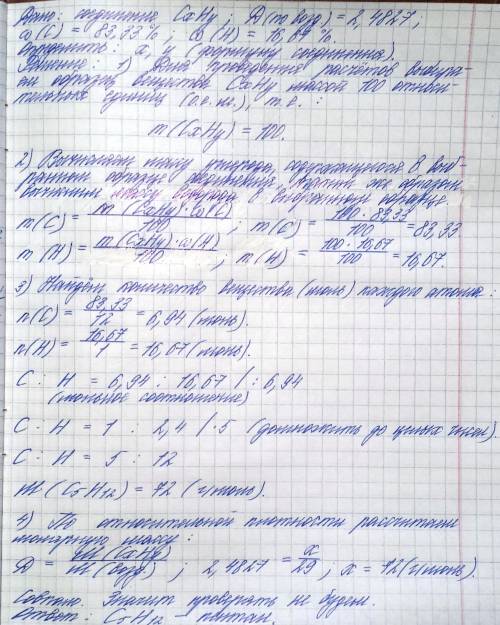 Дано: соединение CxHy; D(по возд) = 2,4827;
ω(C) = 83,33%; ω(H) = 16,67%.
Определить: x, y (формулу соединения).
Решение: 1) Для проведения расчётов выбира-
ем образец вещества CxHy массой 100 относи-
тельных единиц (о.е.м.), т.е.:
m(CxHy) = 100.
2) Вычисляем массу углерода, содержащегося в выб-
ранном образце соединения. Таким же образом
вычислим массу водорода в выбранном образце.
m(C) = m(CxHy)·ω(C) / 100; m(C) = 100·83,33 / 100 = 83,33
m(H) = m(CxHy)·ω(H) / 100; m(H) = 100·16,67 / 100 = 16,67.
3) Найдём количество вещества (моль) каждого атома:
n(C) = 83,33 / 12 = 6,94 (моль).
n(H) = 16,67 / 1 = 16,67 (моль).
C : H = 6,94 : 16,67 / : 6,94
(мольное соотношение)
C : H = 1 : 2,4 / ·5 (домножить до целых чисел).
C : H = 5 : 12
M(C5H12) = 72 (г/моль).
4) По относительной плотности рассчитаем
молярную массу:
D = M(CxHy) / M(возд); 2,4827 = x / 29; x = 72 (г/моль).
Совпало. Значит проверять не будем.
Ответ: C5H12 – пентан.